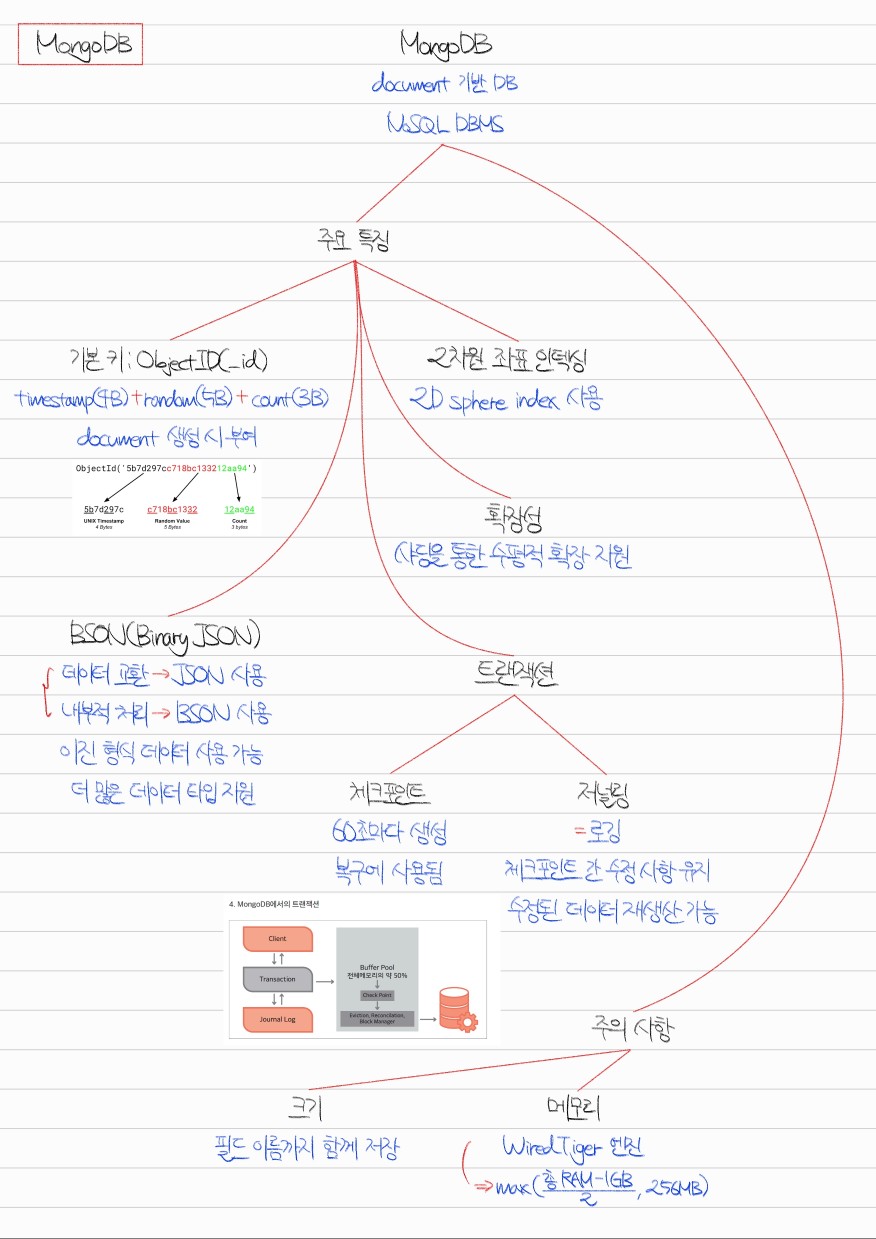 MongoDB
MongoDB
document 기반 DB
NoSQL DBMS
주요 특징
기본 키 : ObjectID(_id)
timestamp(4B) + random(5B) + count(3B)
document 생성 시 부여
ObjectId('5b7d297cc718bc133212aa94')
5b7d297c
UNIX Timestamp
4 Bytes
c718bc1332
Random Value
5 Bytes
12aa94
Count
3 bytes
2차원 좌표 인덱싱
2D sphere index 사용
확장성
샤딩을 통한 수평적 확장 지원
BSON(Binary JSON)
데이터 교환 → JSON 사용
내부적 처리 → BSON 사용
이진 형식 데이터 사용 가능
더 많은 데이터 타입 지원
트랜잭션
체크포인트
60초마다 생성
복구에 사용됨
저널링
= 로깅
체크포인트 간 수정 사항 유지
수정된 데이터 재생산 가능
4. MongoDB에서의 트랜잭션
Client
Transaction
Journal Log
Buffer Pool
전체메모리의 약 50%
Check Point
Eviction, Reconciliation,
Block Manager
주의 사항
크기
필드 이름까지 함께 저장
메모리
WiredTiger 엔진
⇒ max(총 RAM-1GB / 2, 256MB)